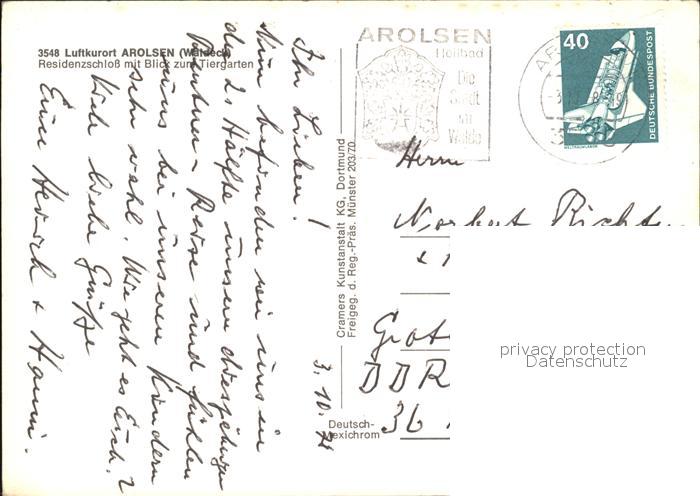 3548 Luftkurort AROLSEN (Waldeck)
Residenzschloß mit Blick zum Tiergarten
Ihr Lieben!
Nun befinden wir uns in
der 2. Hälfte unserer diesjährigen
Rentner-Reise und fühlen
uns bei unseren Kindern
sehr wohl. Wie geht es Euch?
Viele liebe Grüße
Eure Henrich + Hanni.
3.10.
Cramers Kunstanstalt KG, Dortmund
Freigeg. d. Reg.-Präs. Münster 203/70
Deutsch-
Mexichrom
AROLSEN
Heilbad
Die
Stadt
im
Walde
40
DEUTSCHE BUNDESPOST
WELTRAUMLABOR
Herrn
Norbert Richter
DDR
36
privacy protection
Datenschutz